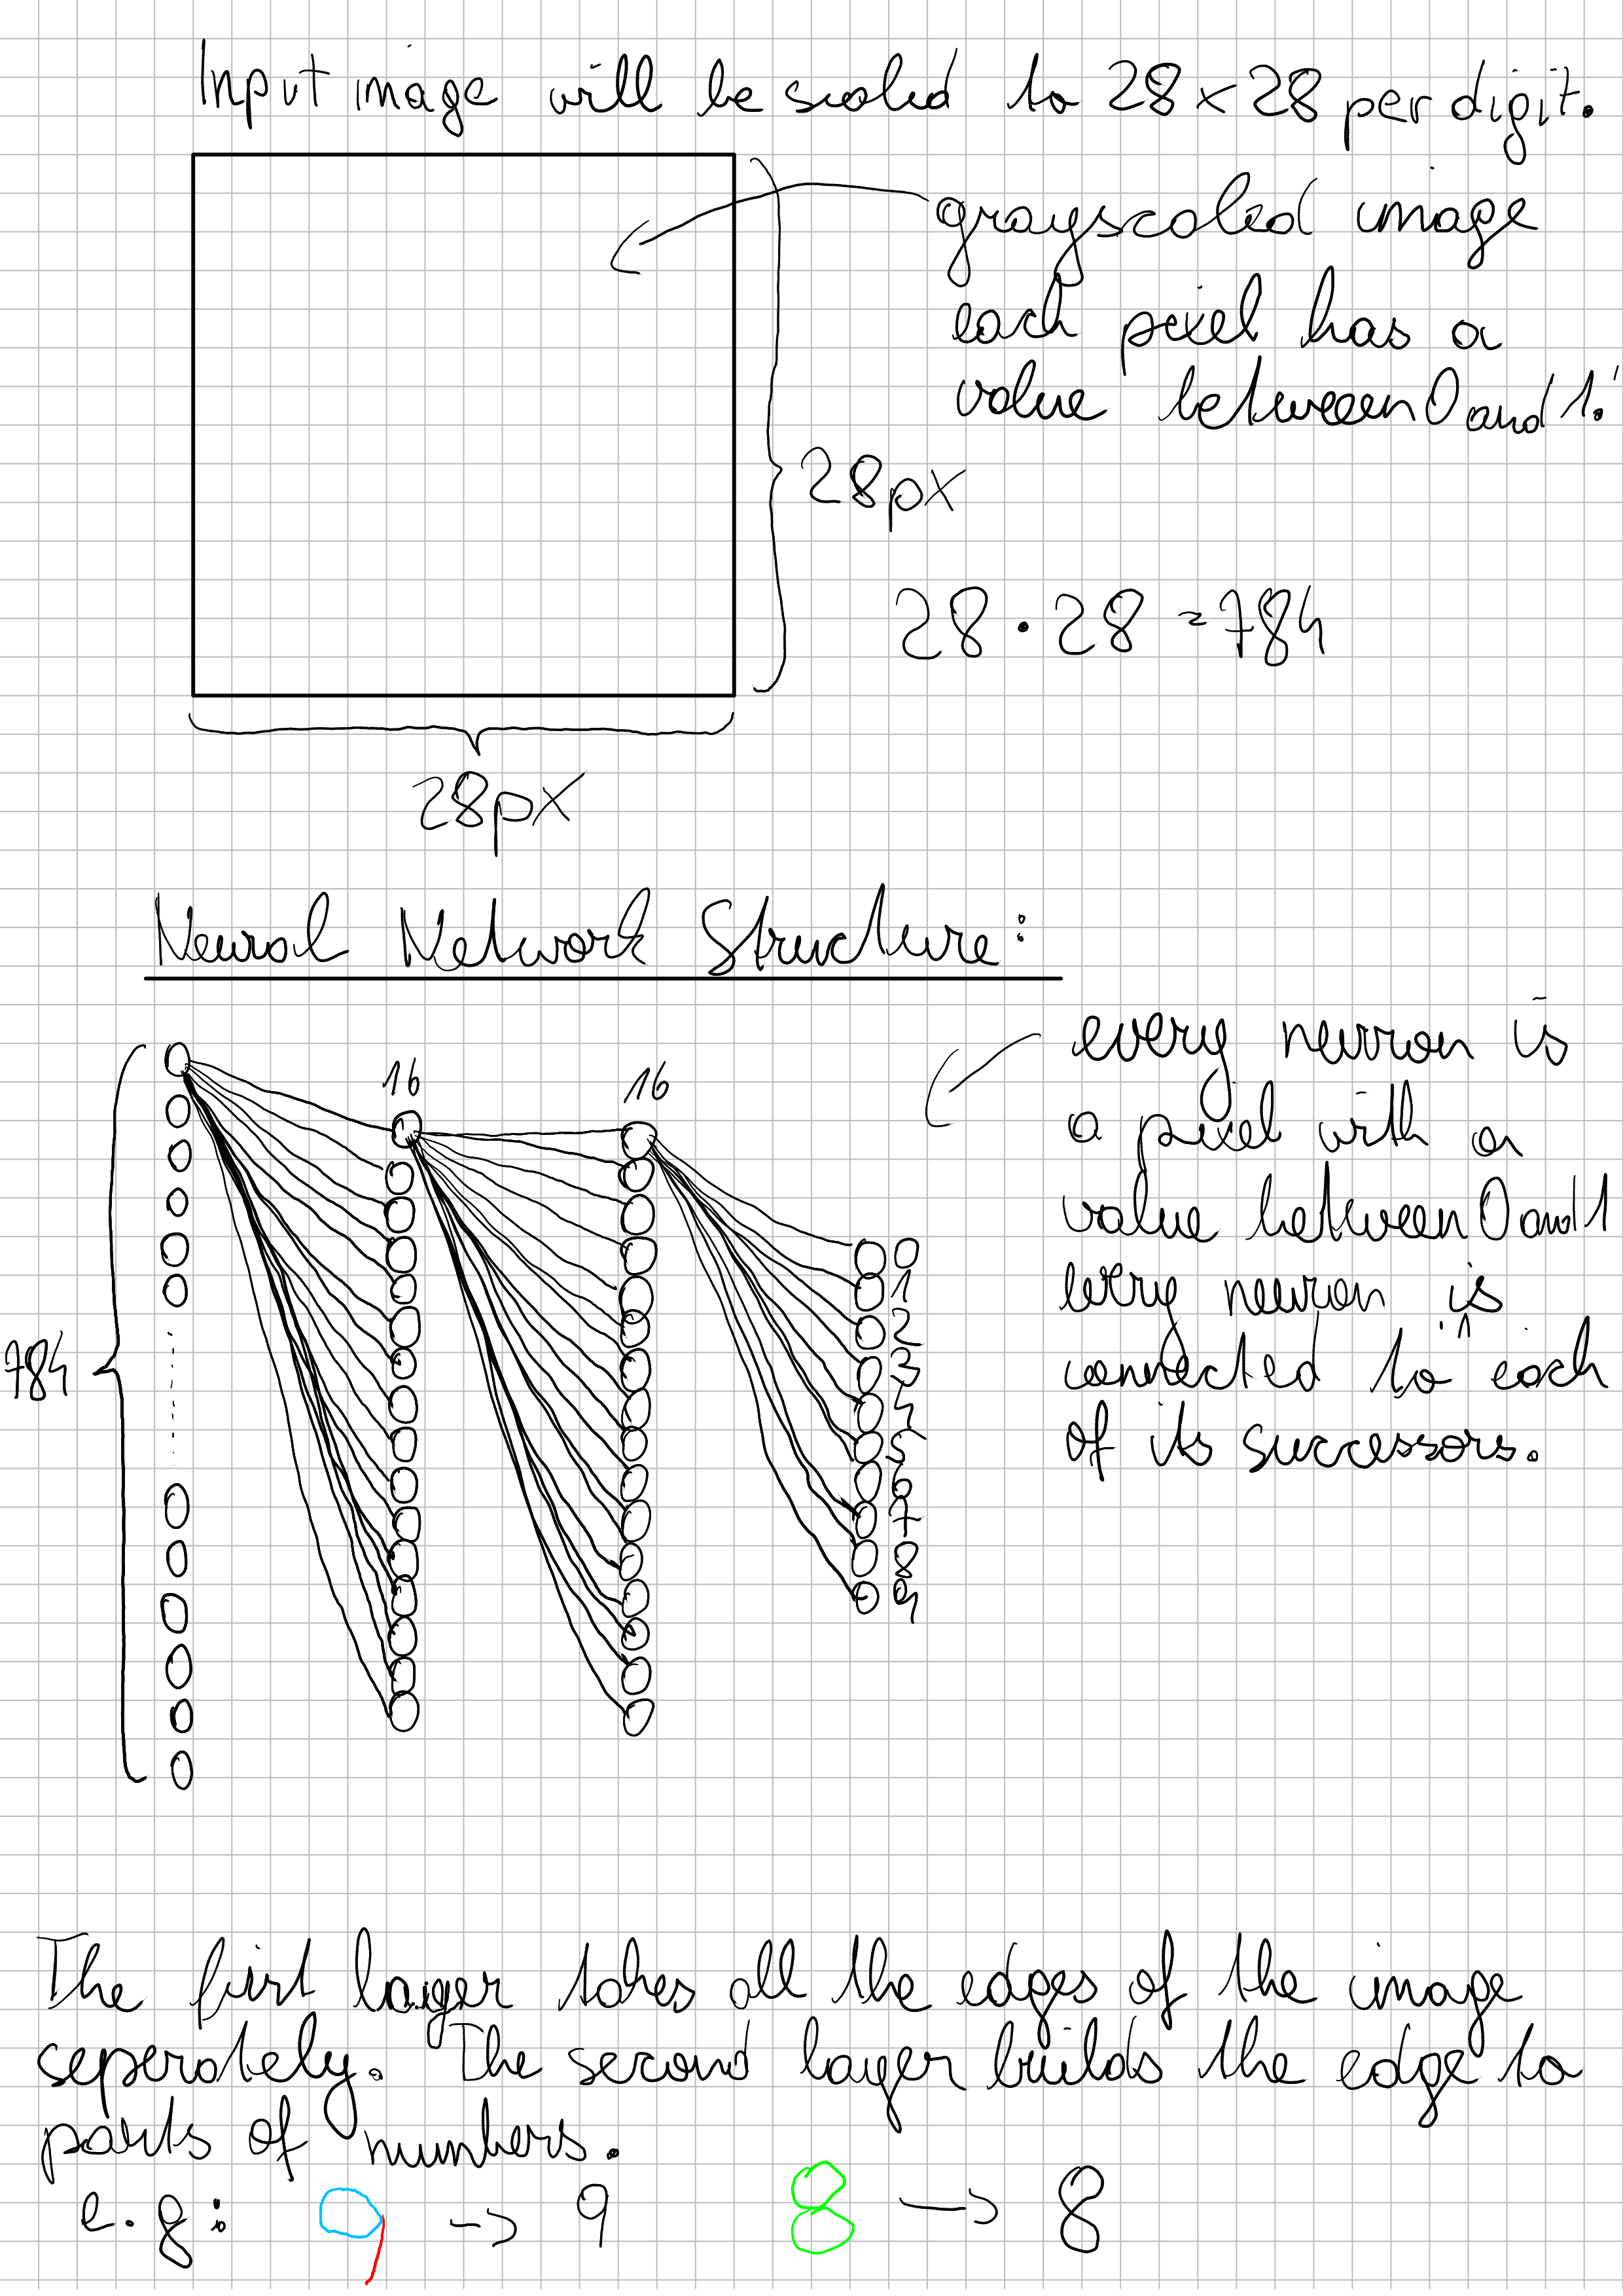 Input image will be scaled to 28 x 28 per digit.
grayscaled image
each pixel has a
value betweeen 0 and 1.
28px
28 · 28 = 784
28px
Neural Network Structure:
every neuron is
a pixel with a
value between 0 and 1
every neuron is
connected to each
of its successors.
16
16
784
0
1
2
3
4
5
6
7
8
9
The first layer takes all the edges of the image
seperately. The second layer builds the edge to
parts of numbers.
e.g: 9 -> 9 8 -> 8